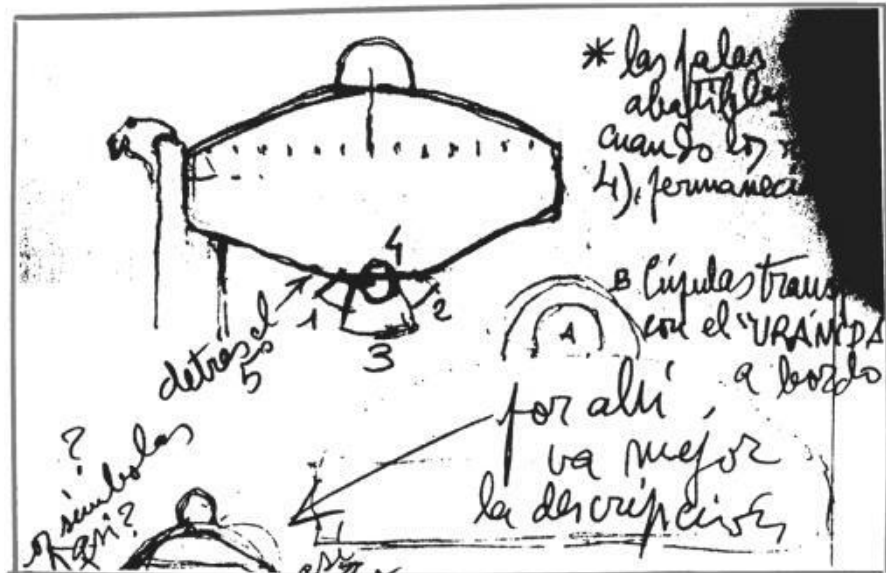 * las palas
abatibles
cuando los
4), permanecía
4
1
2
3
detrás el
5º
B Cúpulas trans
A
con el "URÁNIDA
a bordo
por ahí
va mejor
la descripción
?
símbolos
así?